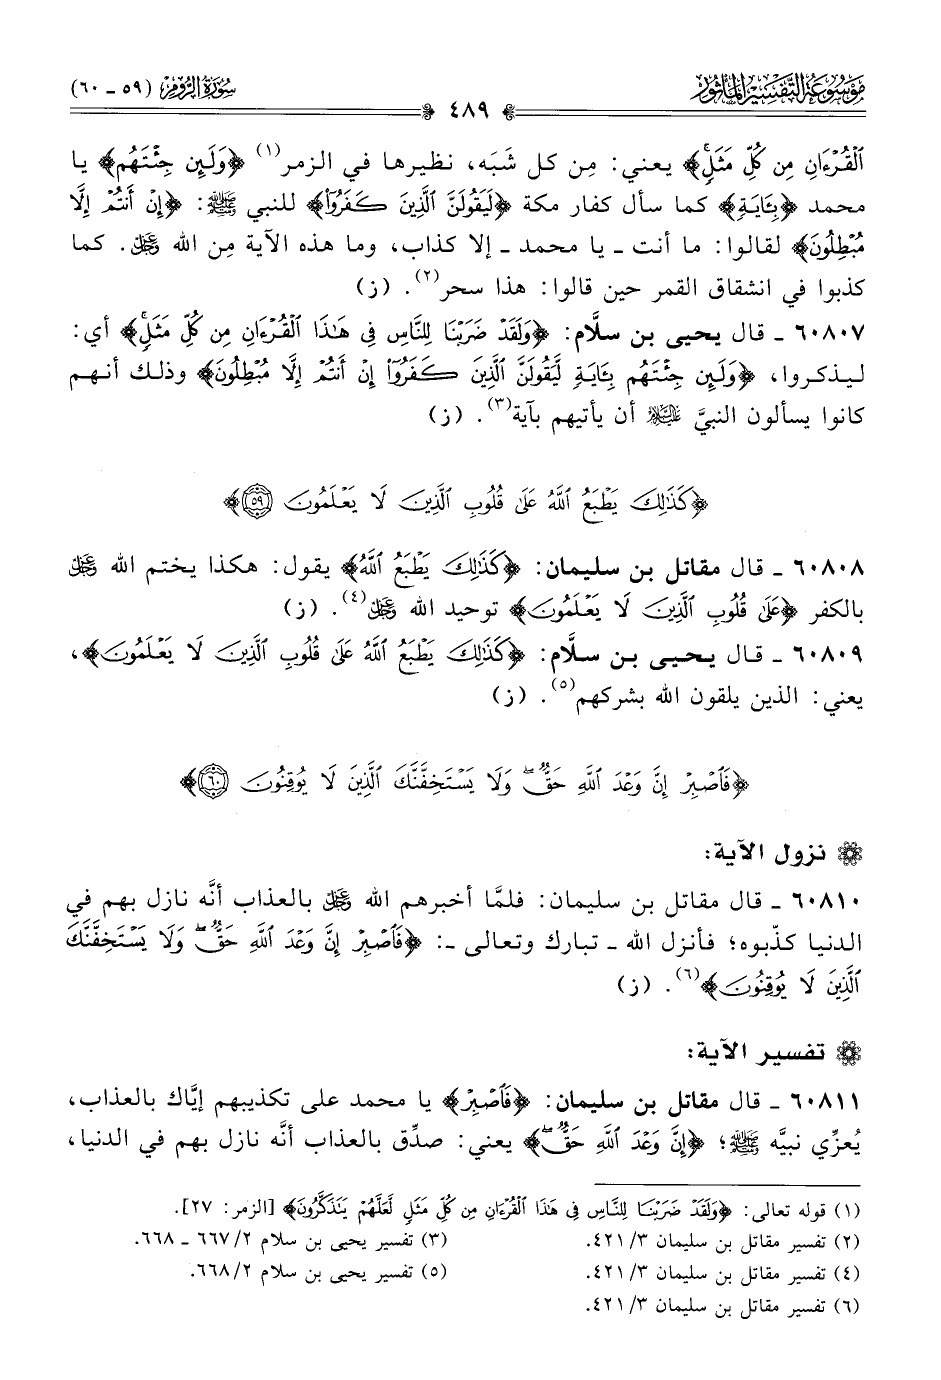 موسوعة التفسير المأثور
سورة الروم (٥٩ - ٦٠)
٤٨٩
ٱلۡقُرۡءَانِ مِن كُلِّ مَثَلٖۚ﴾ يعني: مِن كل شَبَه، نظيرها في الزمر(١) ﴿وَلَئِن جِئۡتَهُم﴾ يا
محمد ﴿بِـَٔايَةٖ﴾ كما سأل كفار مكة ﴿لَيَقُولَنَّ ٱلَّذِينَ كَفَرُوٓاْ﴾ للنبي ﷺ: ﴿إِنۡ أَنتُمۡ إِلَّا
مُبۡطِلُونَ﴾ لقالوا: ما أنت ـ يا محمد ـ إلا كذاب، وما هذه الآية مِن الله عز وجل. كما
كذبوا في انشقاق القمر حين قالوا: هذا سحر(٢). (ز)
٦٠٨٠٧ ـ قال يحيى بن سلَّام: ﴿وَلَقَدۡ ضَرَبۡنَا لِلنَّاسِ فِي هَٰذَا ٱلۡقُرۡءَانِ مِن كُلِّ مَثَلٖۚ﴾ أي:
ليذكروا، ﴿وَلَئِن جِئۡتَهُم بِـَٔايَةٖ لَّيَقُولَنَّ ٱلَّذِينَ كَفَرُوٓاْ إِنۡ أَنتُمۡ إِلَّا مُبۡطِلُونَ﴾ وذلك أنهم
كانوا يسألون النبيَّ عليه السلام أن يأتيهم بآية(٣). (ز)
﴿كَذَٰلِكَ يَطۡبَعُ ٱللَّهُ عَلَىٰ قُلُوبِ ٱلَّذِينَ لَا يَعۡلَمُونَ ٥٩﴾
٦٠٨٠٨ ـ قال مقاتل بن سليمان: ﴿كَذَٰلِكَ يَطۡبَعُ ٱللَّهُ﴾ يقول: هكذا يختم الله عز وجل
بالكفر ﴿عَلَىٰ قُلُوبِ ٱلَّذِينَ لَا يَعۡلَمُونَ﴾ توحيد الله عز وجل(٤). (ز)
٦٠٨٠٩ ـ قال يحيى بن سلَّام: ﴿كَذَٰلِكَ يَطۡبَعُ ٱللَّهُ عَلَىٰ قُلُوبِ ٱلَّذِينَ لَا يَعۡلَمُونَ﴾،
يعني: الذين يلقون الله بشركهم(٥). (ز)
﴿فَٱصۡبِرۡ إِنَّ وَعۡدَ ٱللَّهِ حَقّٞۖ وَلَا يَسۡتَخِفَّنَّكَ ٱلَّذِينَ لَا يُوقِنُونَ ٦٠﴾
نزول الآية:
٦٠٨١٠ ـ قال مقاتل بن سليمان: فلمَّا أخبرهم الله عز وجل بالعذاب أنَّه نازل بهم في
الدنيا كذّبوه؛ فأنزل الله ـ تبارك وتعالى ـ: ﴿فَٱصۡبِرۡ إِنَّ وَعۡدَ ٱللَّهِ حَقّٞۖ وَلَا يَسۡتَخِفَّنَّكَ
ٱلَّذِينَ لَا يُوقِنُونَ﴾(٦). (ز)
تفسير الآية:
٦٠٨١١ ـ قال مقاتل بن سليمان: ﴿فَٱصۡبِرۡ﴾ يا محمد على تكذيبهم إيَّاك بالعذاب،
يُعزِّي نبيَّه ﷺ؛ ﴿إِنَّ وَعۡدَ ٱللَّهِ حَقّٞۖ﴾ يعني: صدِّق بالعذاب أنَّه نازل بهم في الدنيا،
(١) قوله تعالى: ﴿وَلَقَدۡ ضَرَبۡنَا لِلنَّاسِ فِي هَٰذَا ٱلۡقُرۡءَانِ مِن كُلِّ مَثَلٖ لَّعَلَّهُمۡ يَتَذَكَّرُونَ﴾ [الزمر: ٢٧].
(٢) تفسير مقاتل بن سليمان ٣/ ٤٢١.
(٣) تفسير يحيى بن سلام ٢/ ٦٦٧ ـ ٦٦٨.
(٤) تفسير مقاتل بن سليمان ٣/ ٤٢١.
(٥) تفسير يحيى بن سلام ٢/ ٦٦٨.
(٦) تفسير مقاتل بن سليمان ٣/ ٤٢١.